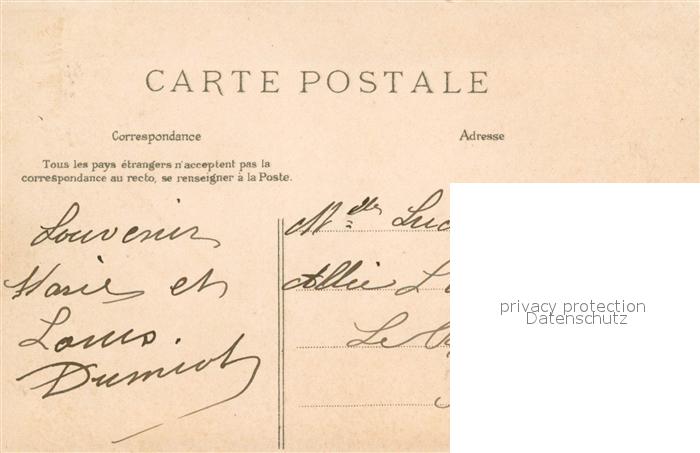 CARTE POSTALE
Correspondance
Adresse
Tous les pays étrangers n'acceptent pas la
correspondance au recto, se renseigner à la Poste.
Souvenir
Marie et
Louis.
Dumiot
Mdlle Luc
Allée L
Le
privacy protection
Datenschutz